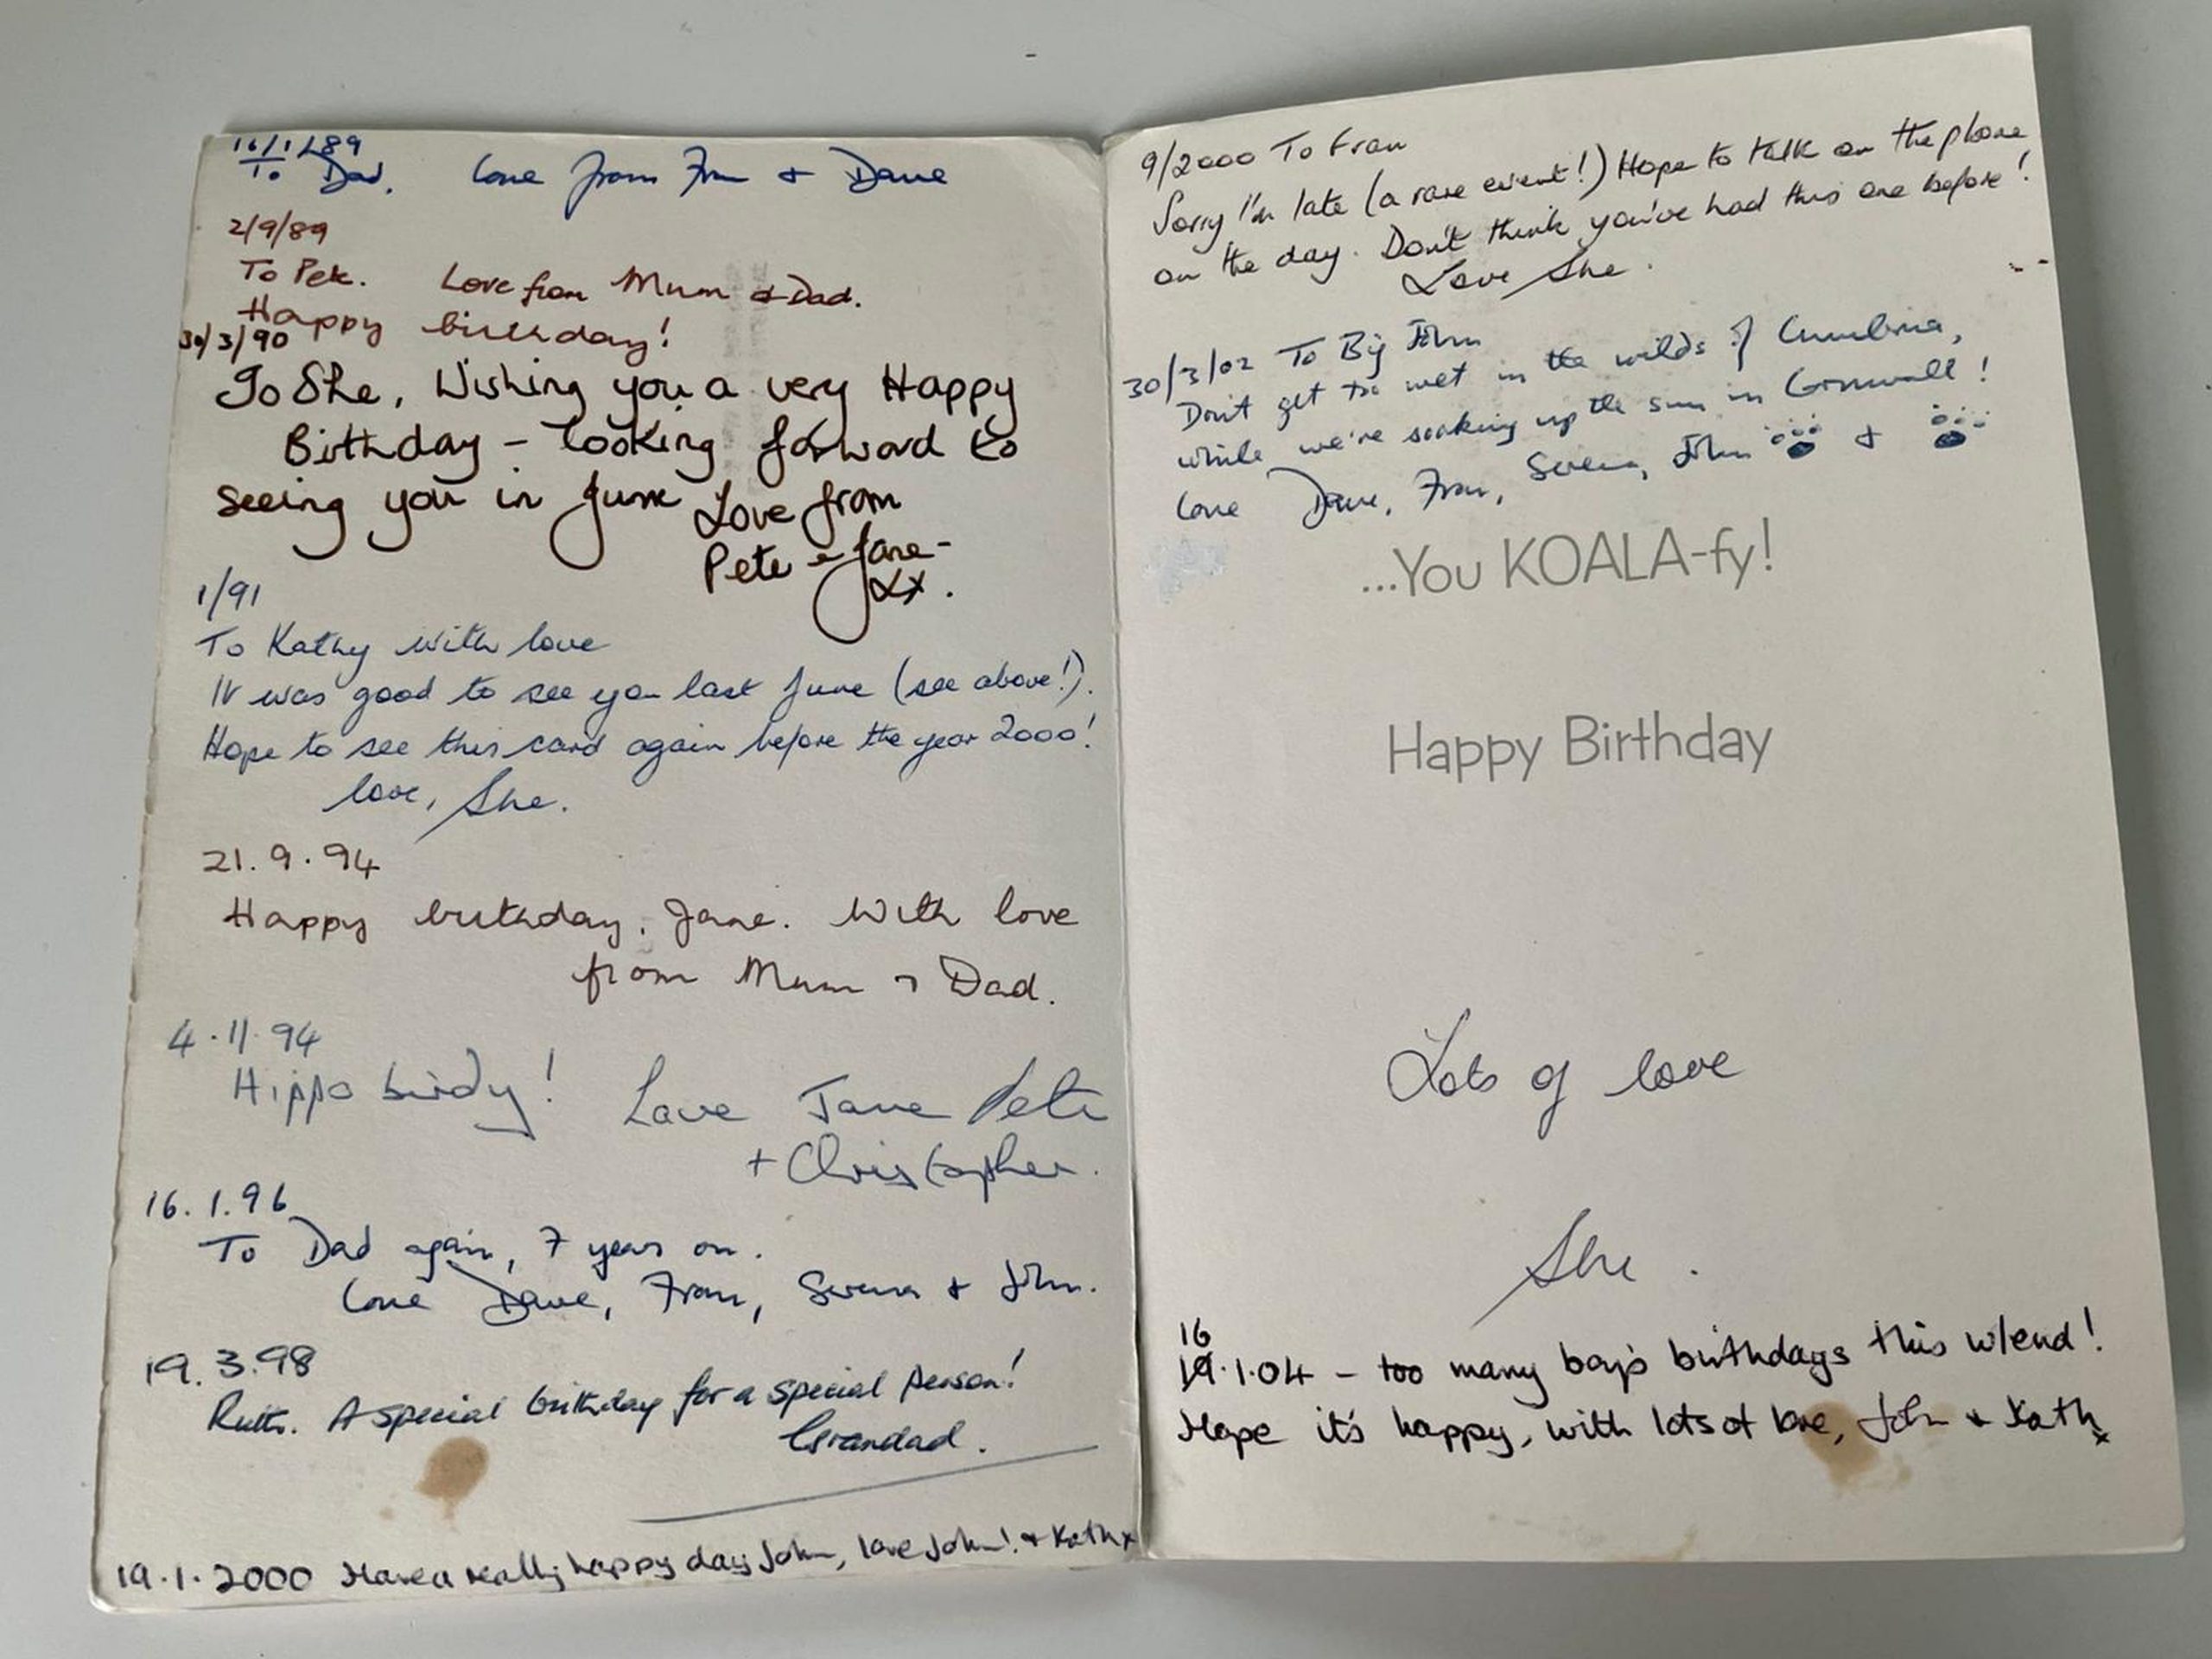 16/1/89
To Dad. Love from Fran & Dave
2/9/89
To Pete. Love from Mum & Dad.
Happy birthday!
30/3/90
To She, Wishing you a very Happy
Birthday - looking forward to
seeing you in June Love from
Pete & Jane -
xx.
1/91
To Kathy with love
It was good to see you last June (see above!).
Hope to see this card again before the year 2000!
love, She.
21.9.94
Happy birthday, Jane. With love
from Mum & Dad.
4.11.94
Hippo birdy! Love Jane Pete
+ Christopher.
16.1.96
To Dad again, 7 years on.
Love Dave, Fran, Serena & John.
19.3.98
Ruth. A special birthday for a special person!
Grandad.
19.1.2000 Have a really happy day John, love John! & Kath x
9/2000 To Fran
Sorry I'm late (a rare event!) Hope to talk on the phone
on the day. Don't think you've had this one before!
Love She.
30/3/02 To Big John
Don't get too wet in the wilds of Cumbria,
while we're soaking up the sun in Cornwall!
Love Dave, Fran, Serena, John &
...You KOALA-fy!
Happy Birthday
Lots of love
She.
16
19.1.04 - too many boys birthdays this w/end!
Hope it's happy, with lots of love, John & Kath x